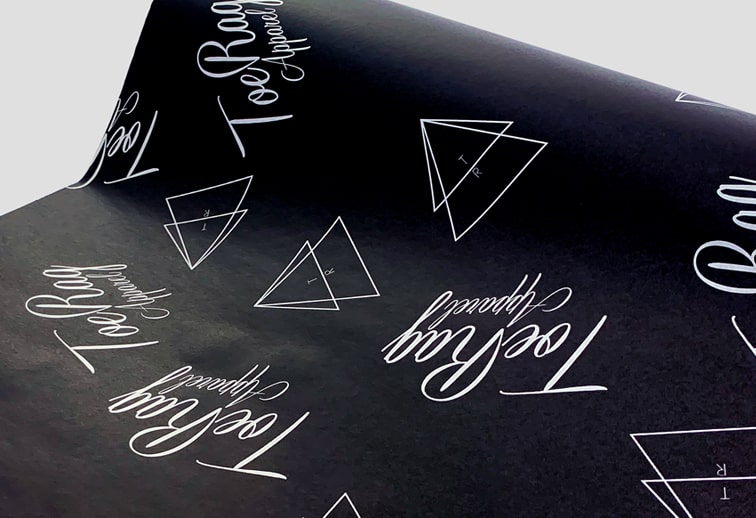 ToeRag
Apparel
T R
T R
T R
ToeRag
Apparel
ToeRag
Apparel
ToeRag
Apparel
Rag
R
T